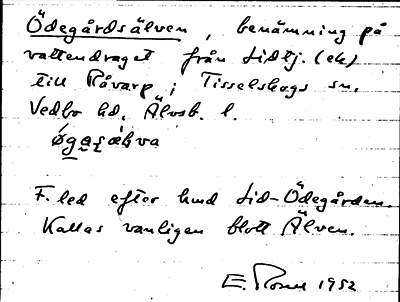 Ödegårdsälven, benämning på
vattendraget från Lidtj. (ek)
till Råvarp i Tisselskogs sn.
Vedbo hd. Älvsb. l.
F. led efter hmd Lid-Ödegården.
Kallas vanligen blott Älven.
E. 1952